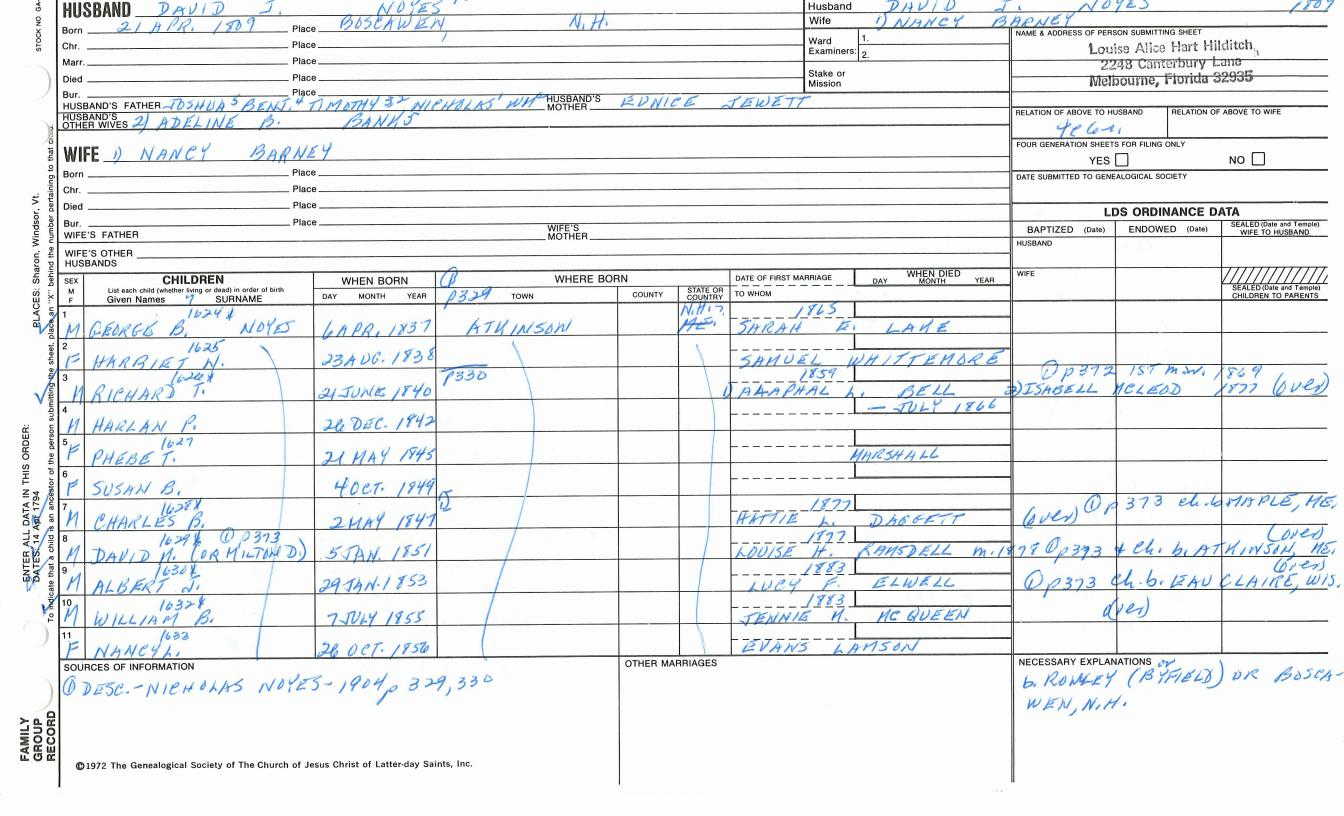 HUSBAND DAVID J. NOYES
Born 21 APR. 1809 Place BOSCAWEN, N.H.
Chr. Place
Marr. Place
Died Place
Bur. Place
HUSBAND'S FATHER JOSHUA⁵ BENJ.⁴ TIMOTHY³² NICHOLAS¹ WM HUSBAND'S MOTHER EUNICE JEWETT
HUSBAND'S OTHER WIVES 2) ADELINE B. BANKS
Husband DAVID J. NOYES 1809
Wife 1) NANCY BARNEY
Ward Examiners: 1.
2.
Stake or Mission
NAME & ADDRESS OF PERSON SUBMITTING SHEET
Louise Alice Hart Hilditch,
2248 Canterbury Lane
Melbourne, Florida 32935
RELATION OF ABOVE TO HUSBAND RELATION OF ABOVE TO WIFE
FOUR GENERATION SHEETS FOR FILING ONLY
YES NO
DATE SUBMITTED TO GENEALOGICAL SOCIETY
WIFE 1) NANCY BARNEY
Born Place
Chr. Place
Died Place
Bur. Place
WIFE'S FATHER WIFE'S MOTHER
WIFE'S OTHER HUSBANDS
LDS ORDINANCE DATA
BAPTIZED (Date) ENDOWED (Date) SEALED (Date and Temple) WIFE TO HUSBAND
HUSBAND
WIFE
SEALED (Date and Temple) CHILDREN TO PARENTS
SEX M F CHILDREN WHEN BORN WHERE BORN DATE OF FIRST MARRIAGE WHEN DIED
List each child (whether living or dead) in order of birth
Given Names SURNAME DAY MONTH YEAR p329 TOWN COUNTY STATE OR COUNTRY TO WHOM DAY MONTH YEAR
1 1624 N.H.? 1865
M GEORGE B. NOYES 6 APR. 1837 ATKINSON ME. SARAH E. LAKE
2 1625
F HARRIET N. 23 AUG. 1838 SAMUEL WHITTEMORE
3 1626 p330 1859 ① p372 1ST mar. 1869
M RICHARD T. 21 JUNE 1840 1) BELL 2) ISABELL MCLEOD 1877 (over)
4 — JULY 1866
M HARLAN P. 26 DEC. 1842
5 1627
F PHEBE T. 21 MAY 1845 MARSHALL
6
F SUSAN B. 4 OCT. 1849
7 1628 1877 ① p373 ch. b. MAPLE, ME.
M CHARLES B. 2 MAY 1847 HATTIE L. DAGGETT (over)
8 1629 ① p373 1877 (over)
M DAVID M. (OR MILTON D.) 5 JAN. 1851 LOUISE H. RAMSDELL m. 1878 ① p373 4 ch. b. ATKINSON, ME.
9 1630 1883 (over)
M ALBERT J. 29 JAN. 1853 LUCY F. ELWELL ① p373 ch. b. EAU CLAIRE, WIS.
10 1632 1883 (over)
M WILLIAM B. 7 JULY 1855 JENNIE M. MCQUEEN
11 1633
F NANCY L. 26 OCT. 1856 EVANS LAMSON
SOURCES OF INFORMATION
① DESC.-NICHOLAS NOYES-1904 p 329, 330
OTHER MARRIAGES
NECESSARY EXPLANATIONS or
b. ROWLEY (BYFIELD) OR BOSCA-
WEN, N.H.
©1972 The Genealogical Society of The Church of Jesus Christ of Latter-day Saints, Inc.
STOCK NO. GA
PLACES: Sharon, Windsor, Vt.
ENTER ALL DATA IN THIS ORDER:
DATES: 14 Apr 1794
To indicate that a child is an ancestor of the person submitting the sheet, place an "X" behind the number pertaining to that child.
FAMILY GROUP RECORD